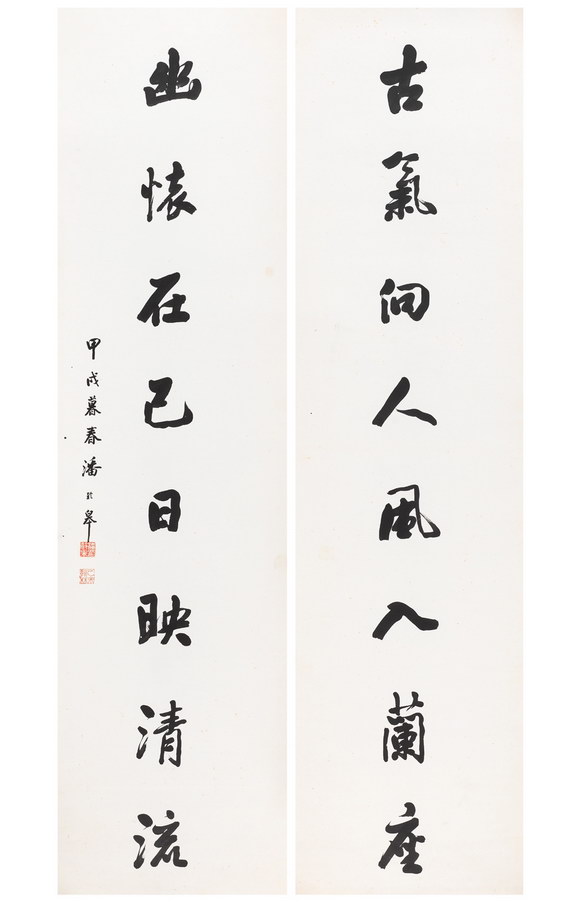 古氣向人風入蘭座
幽懷在己日映清流
甲戌暮春潘於皋